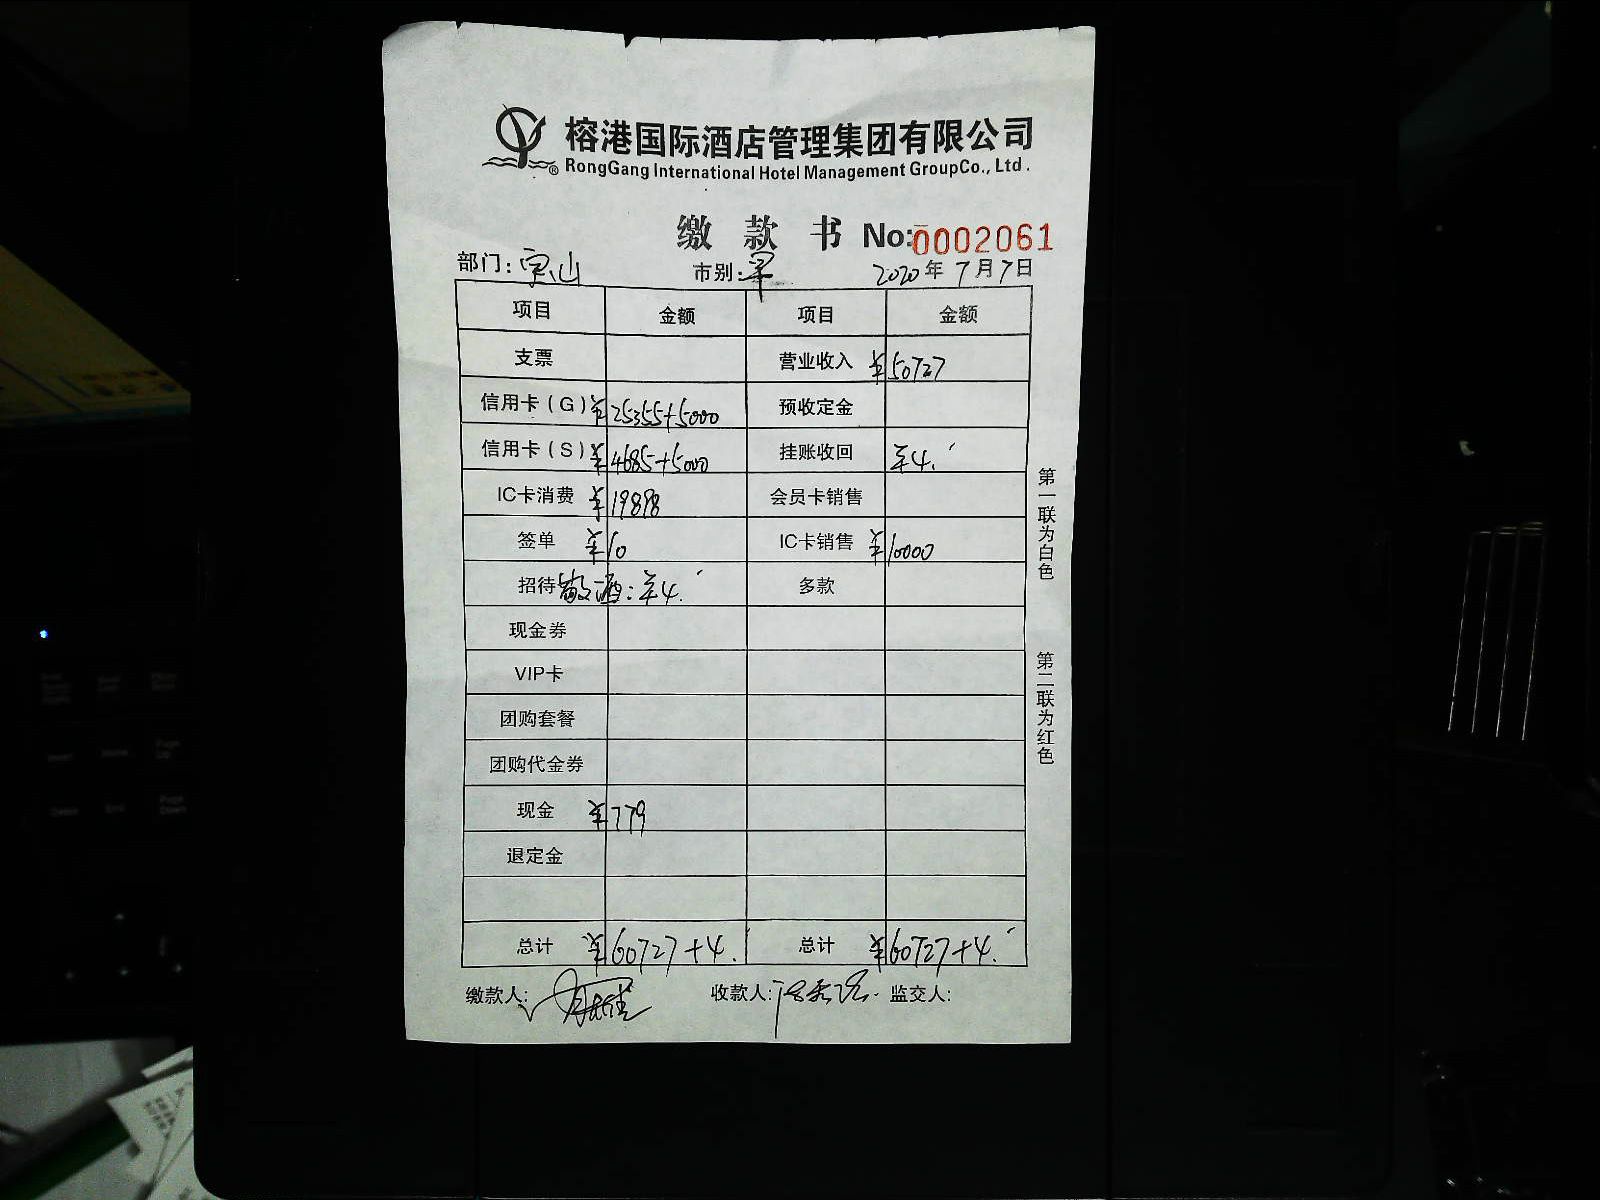 榕港国际酒店管理集团有限公司
® RongGang International Hotel Management GroupCo., Ltd.
缴 款 书 No:0002061
部门: 宝山 市别: 早 2020年7月7日
项目 金额 项目 金额
支票 营业收入 ¥50727
信用卡(G) ¥25355+5000 预收定金
信用卡(S) ¥4685+5000 挂账收回 ¥4.
IC卡消费 ¥19898 会员卡销售
签单 ¥10 IC卡销售 ¥10000
招待 敬酒:¥4. 多款
现金券
VIP卡
团购套餐
团购代金券
现金 ¥779
退定金
总计 ¥60727+4. 总计 ¥60727+4.
缴款人: 收款人: 监交人:
第一联为白色
第二联为红色